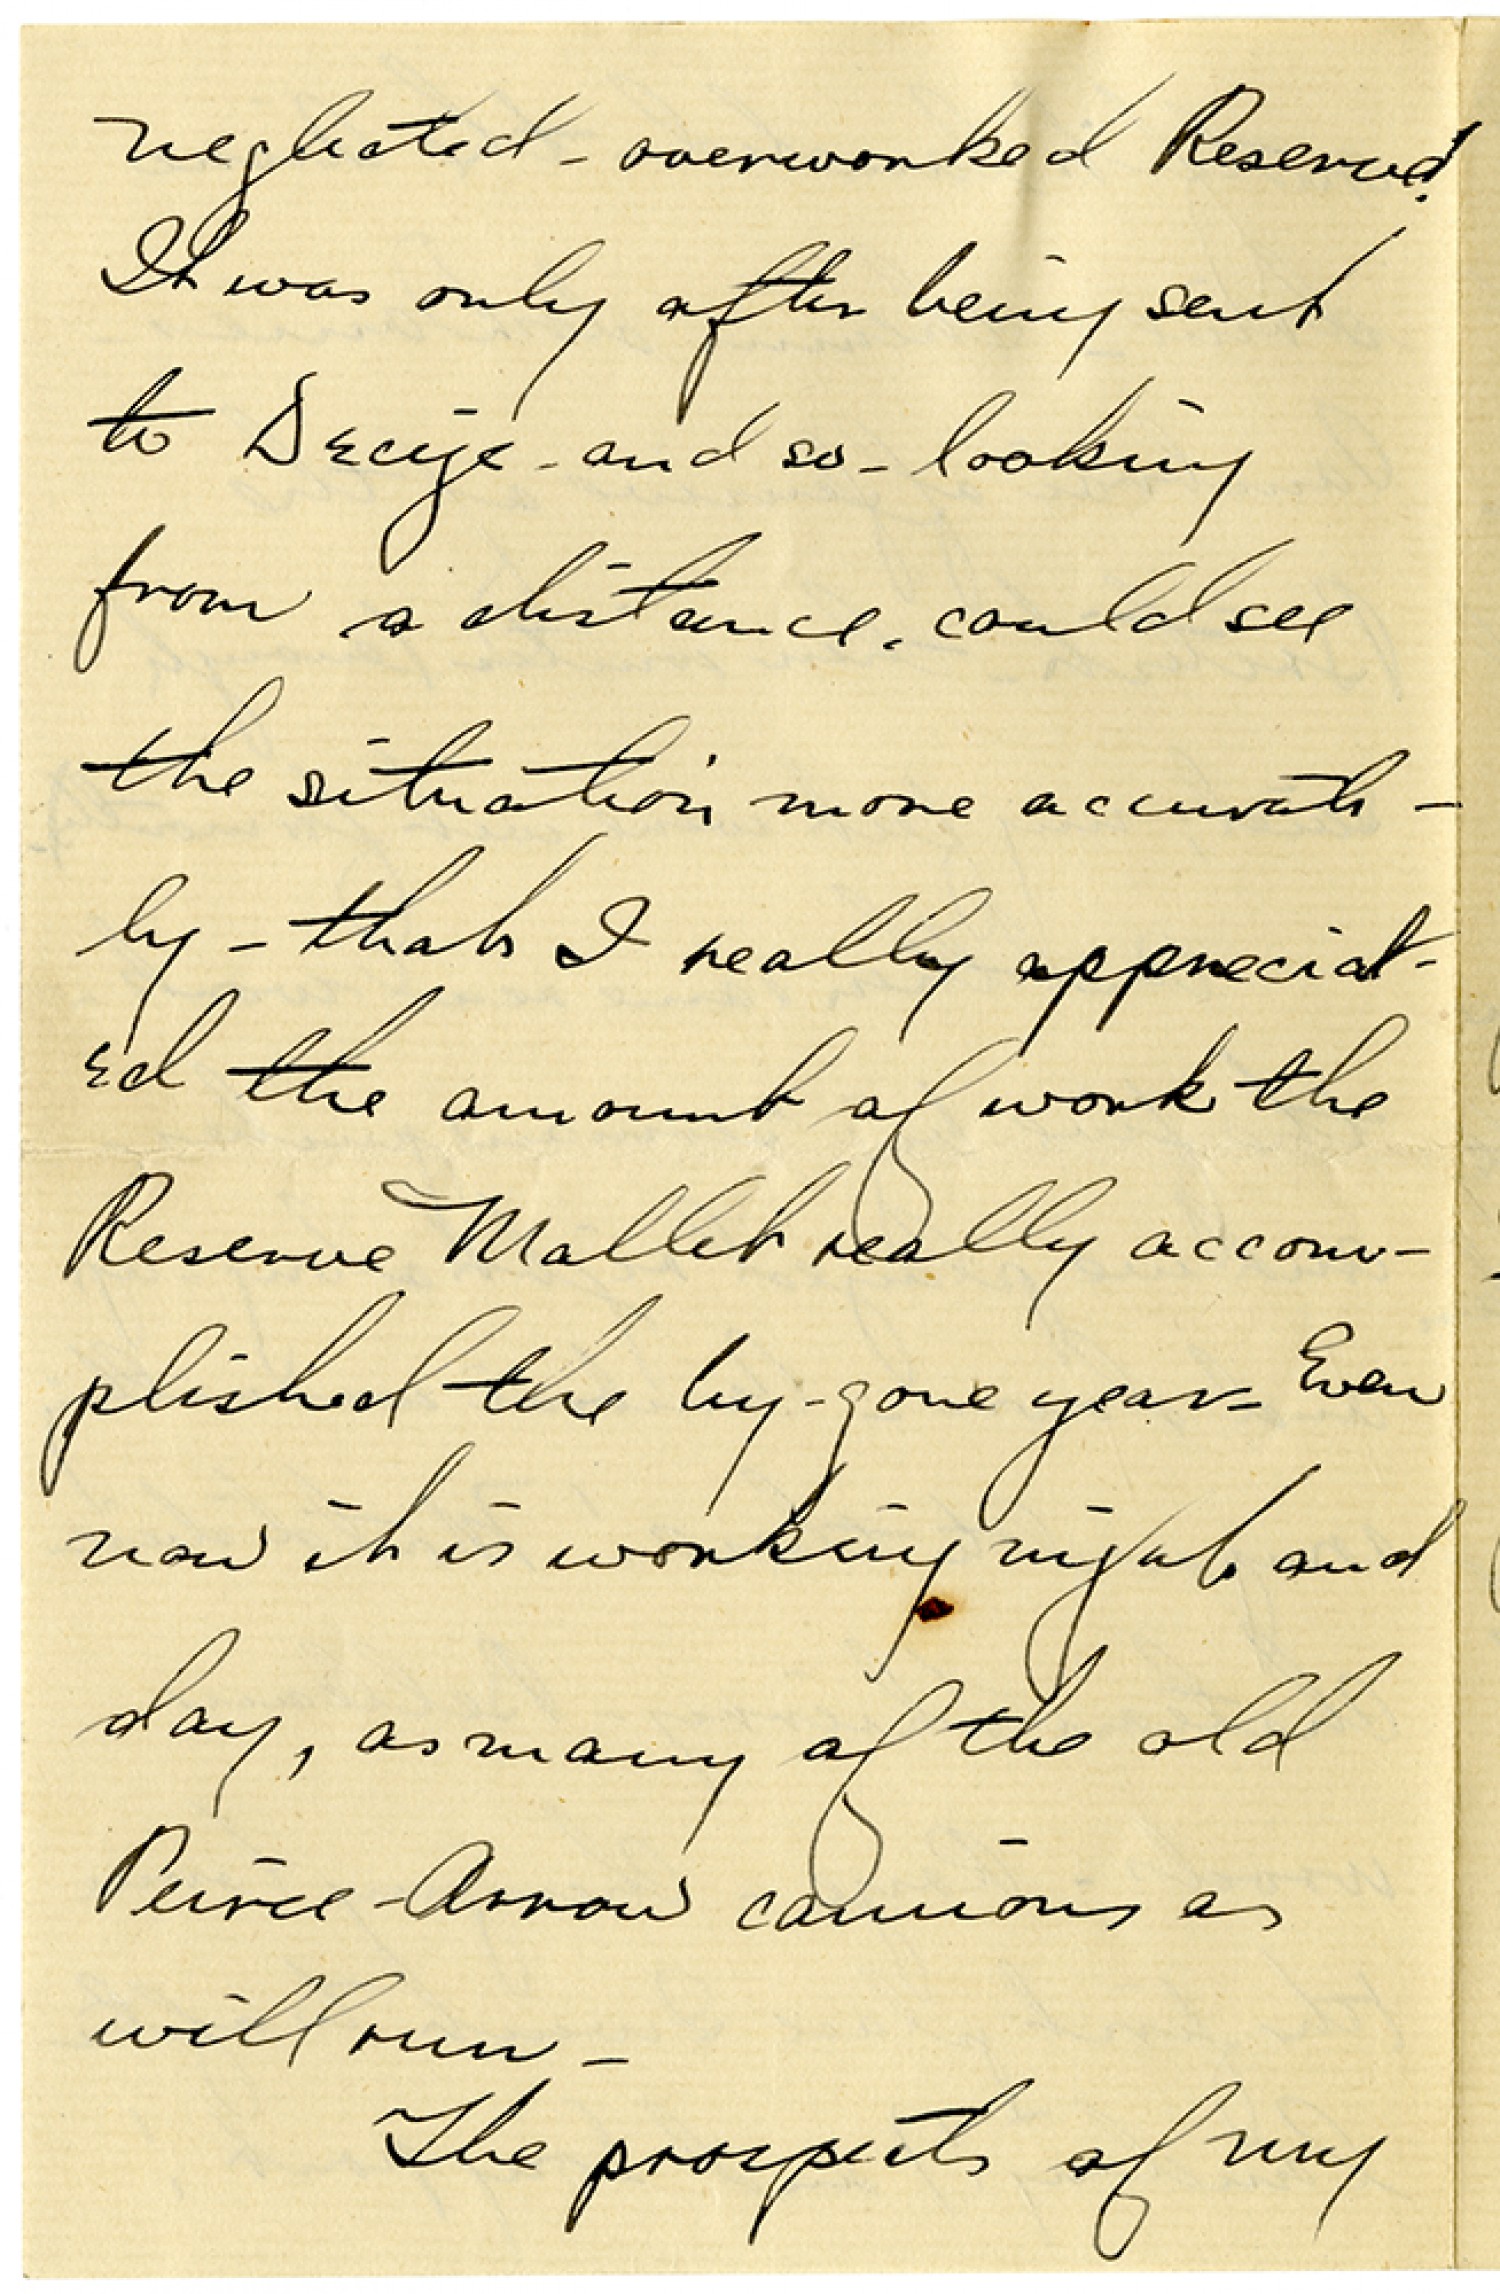 neglected - overworked Reserve!
It was only after being sent
to Decize - and so - looking
from a distance, could see
the situation more accurate -
ly - that I really appreciat -
ed the amount of work the
Reserve Mallet really accom -
plished the by-gone year - Even
now it is working night and
day, as many of the old
Peirce-Arrow camions as
will run -
The prospects of my